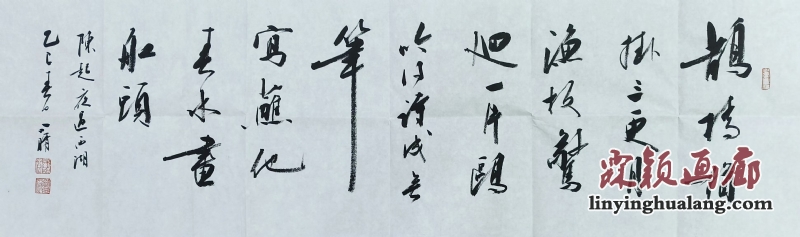 鹊桥斜
掛三更月
渔板惊
廻一片鸥
吟得诗成无
笔
写蘸他
春水画
船头
陈超夜过西湖
乙巳春日一清
霖颖画廊
linyinghualang.com